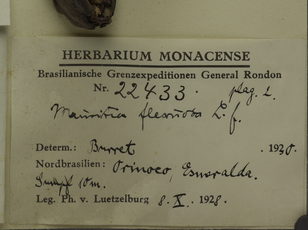 HERBARIUM MONACENSE
Brasilianische Grenzexpeditionen General Rondon
Nr. 22433. plag. 2.
Mauritia flexuosa L. f.
Determ.: Burret . 1930.
Nordbrasilien: Orinoco, Esmeralda.
Sumpf 10 m.
Leg. Ph. v. Luetzelburg 8. X. 1928.